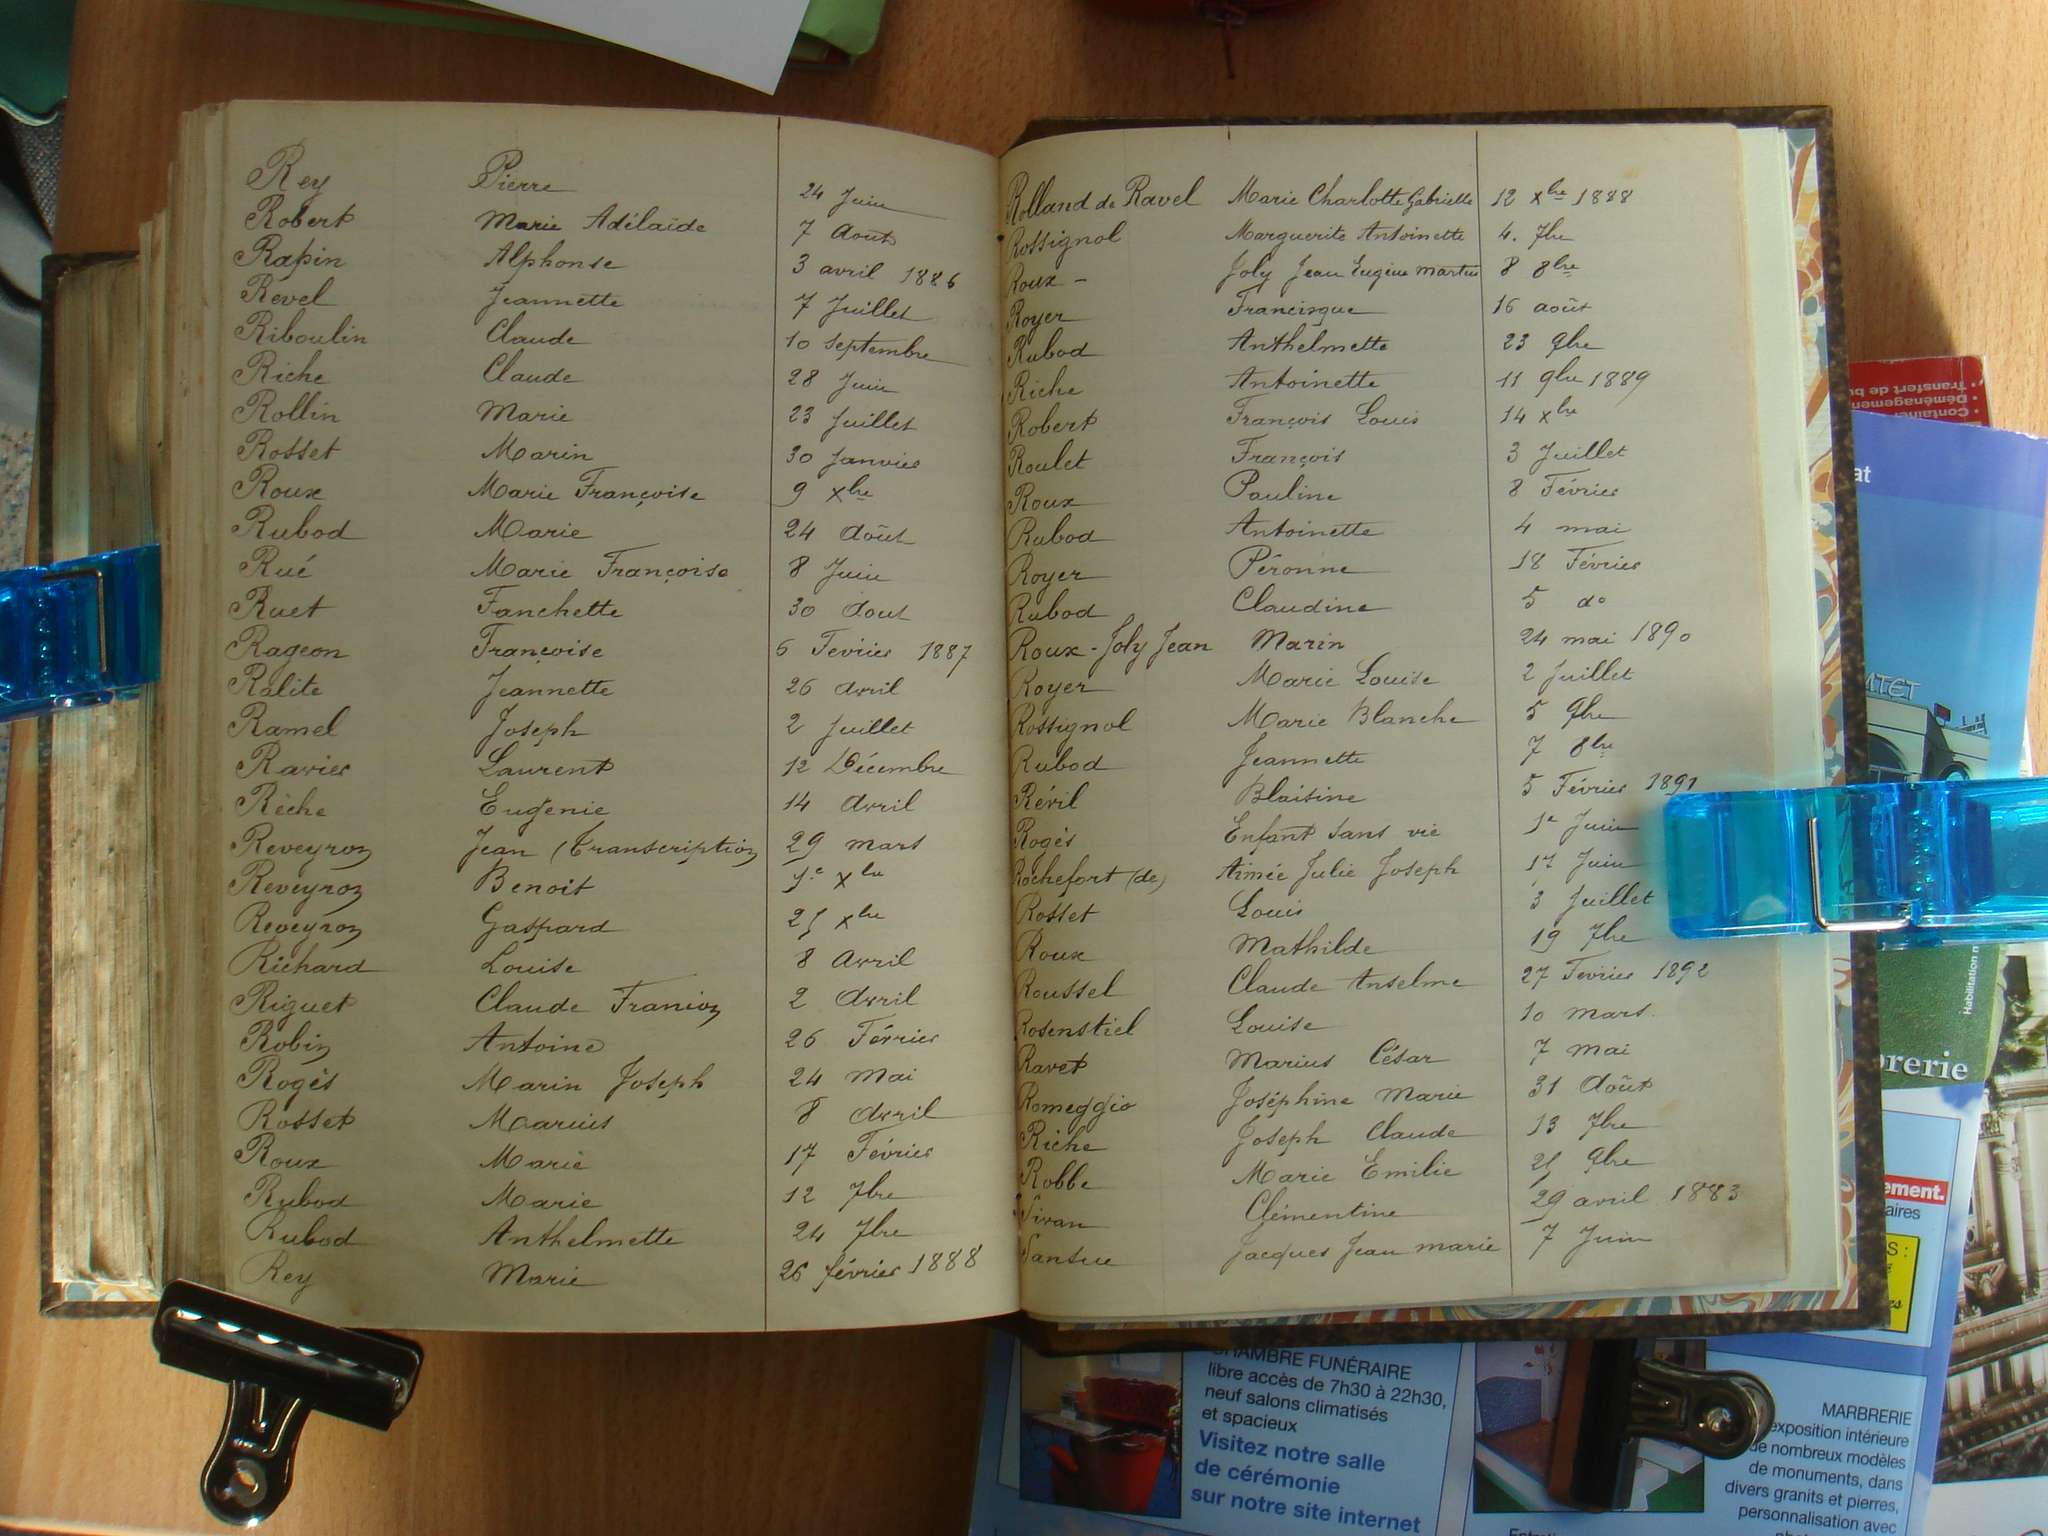 Rey Pierre 24 Juin
Robert Marie Adélaïde 7 Aout
Rapin Alphonse 3 avril 1886
Revel Jeannette 7 Juillet
Riboulin Claude 10 septembre
Riche Claude 28 Juin
Rollin Marie 23 Juillet
Rosset Marin 30 Janvier
Roux Marie Françoise 9 xbre
Rubod Marie 24 Août
Rué Marie Françoise 8 Juin
Ruet Fanchette 30 Aout
Rageon Françoise 6 Fevrier 1887
Ralite Jeannette 26 Avril
Ramel Joseph 2 Juillet
Ravier Laurent 12 Décembre
Rêche Eugenie 14 Avril
Reveyron Jean (Transcription 29 mars
Reveyron Benoit 1e xbre
Reveyron Gaspard 21 xbre
Richard Louise 8 Avril
Riguet Claude Franion 2 Avril
Robin Antoine 26 Février
Rogès Marin Joseph 24 Mai
Rosset Marius 8 Avril
Roux Marie 17 Février
Rubod Marie 12 7bre
Rubod Anthelmette 24 7bre
Rey Marie 26 février 1888
Rolland de Ravel Marie Charlotte Gabrielle 12 xbre 1888
Rossignol Marguerite Antoinette 4. 7bre
Roux - Joly Jean Eugène Martin 8 8bre
Royer Francisque 16 août
Rubod Anthelmette 23 9bre
Riche Antoinette 11 9bre 1889
Robert François Louis 14 xbre
Roulet François 3 Juillet
Roux Pauline 8 Février
Rubod Antoinette 4 mai
Royer Péronne 18 Février
Rubod Claudine 5 do
Roux-Joly Jean Marin 24 mai 1890
Royer Marie Louise 2 Juillet
Rossignol Marie Blanche 5 9bre
Rubod Jeannette 7 8bre
Révil Blaisine 5 Février 1891
Rogès Enfant sans vie 1e Juin
Rochefort (de) Aimée Julie Joseph 17 Juin
Rosset Louis 3 Juillet
Roux Mathilde 19 7bre
Roussel Claude Anselme 27 Fevrier 1892
Rosenstiel Louise 10 mars
Ravet Marius César 7 mai
Romeggio Joséphine Marie 31 Août
Riche Joseph Claude 13 7bre
Robbe Marie Emilie 21 9bre
Sivan Clémentine 29 avril 1883
Sansue Jacques Jean marie 7 Juin
CHAMBRE FUNÉRAIRE
libre accès de 7h30 à 22h30,
neuf salons climatisés
et spacieux
Visitez notre salle
de cérémonie
sur notre site internet
MARBRERIE
exposition intérieure
de nombreux modèles
de monuments, dans
divers granits et pierres,
personnalisation avec